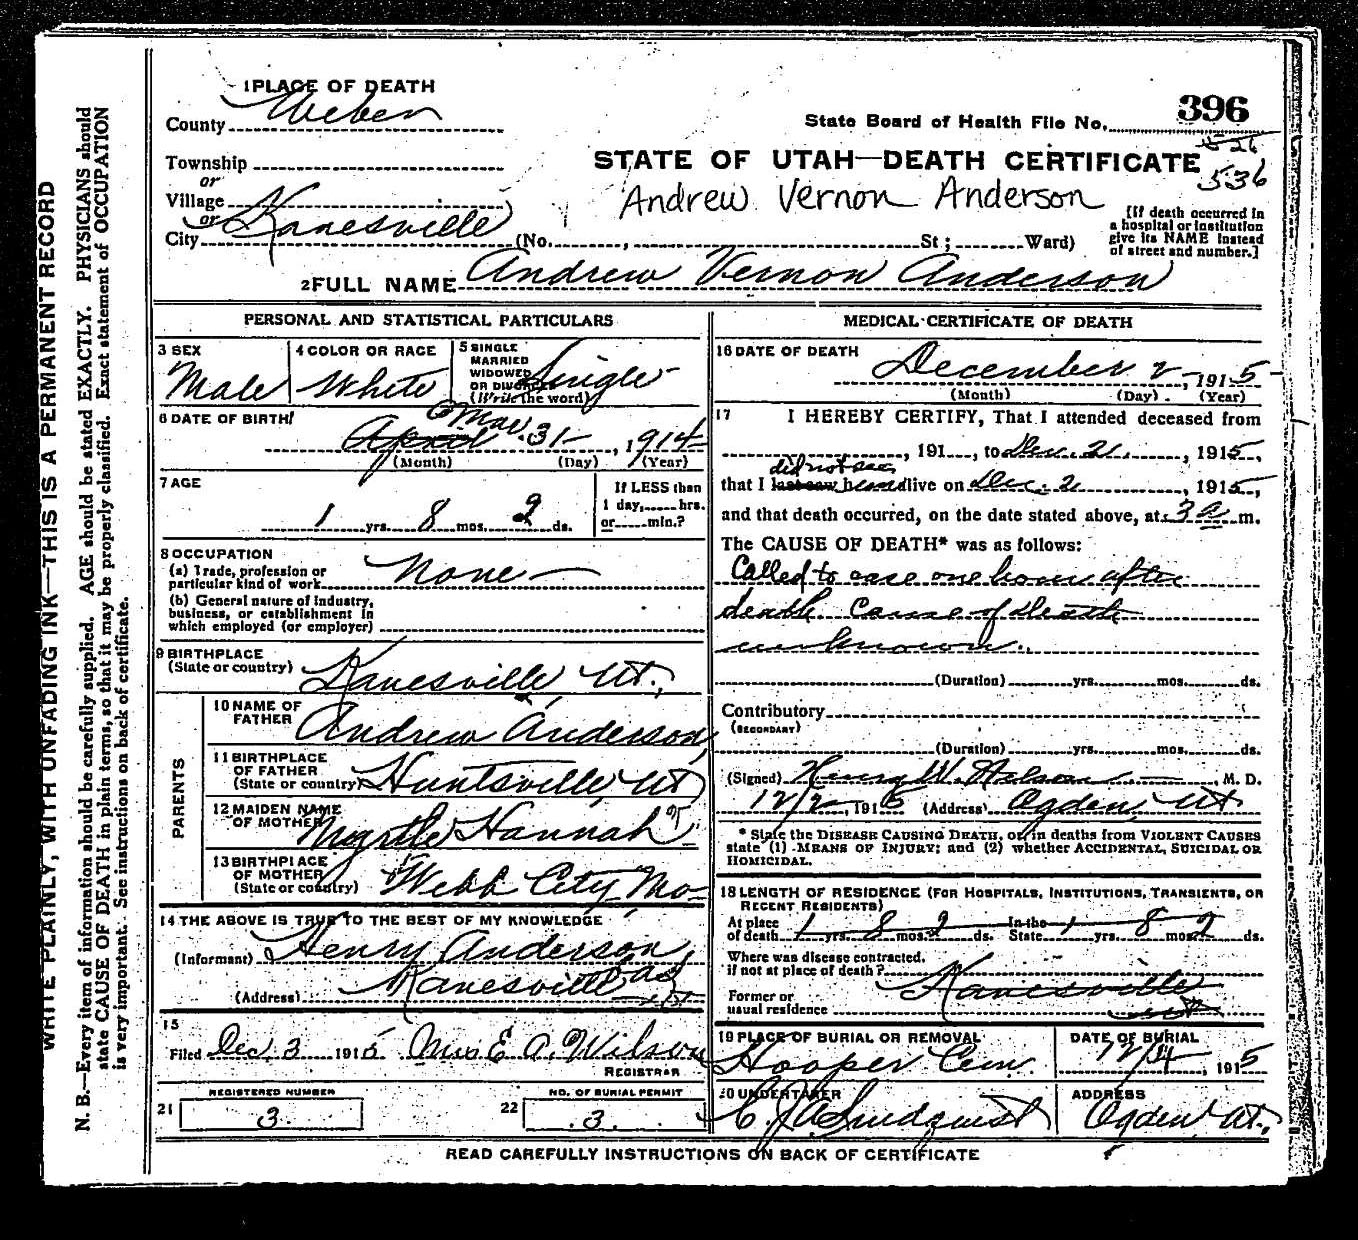 1 PLACE OF DEATH
County Weber
State Board of Health File No. 396
526
536
Township
or
Village
or
City Kanesville (No. , St; Ward)
STATE OF UTAH—DEATH CERTIFICATE
Andrew Vernon Anderson
[If death occurred in
a hospital or institution
give its NAME instead
of street and number.]
2 FULL NAME Andrew Vernon Anderson
PERSONAL AND STATISTICAL PARTICULARS
3 SEX
Male
4 COLOR OR RACE
White
5 SINGLE
MARRIED
WIDOWED
OR DIVORCED
(Write the word)
Single
6 DATE OF BIRTH
April Mar 31 , 1914
(Month) (Day) (Year)
7 AGE
1 yrs. 8 mos. 2 ds.
If LESS than
1 day, hrs.
or min.?
8 OCCUPATION
(a) Trade, profession or
particular kind of work None
(b) General nature of Industry,
business, or establishment in
which employed (or employer)
9 BIRTHPLACE
(State or country) Kanesville Ut.
PARENTS
10 NAME OF
FATHER Andrew Anderson
11 BIRTHPLACE
OF FATHER
(State or country) Huntsville Ut
12 MAIDEN NAME
OF MOTHER Myrtle Hannah
13 BIRTHPLACE
OF MOTHER
(State or country) Webb City Mo
14 THE ABOVE IS TRUE TO THE BEST OF MY KNOWLEDGE
(Informant) Henry Anderson
(Address) Kanesville
15
Filed Dec. 3 1915 Mrs E. A. Wilson
REGISTRAR
21 REGISTERED NUMBER
3.
22 NO. OF BURIAL PERMIT
3.
MEDICAL CERTIFICATE OF DEATH
16 DATE OF DEATH
December 2 , 1915
(Month) (Day) (Year)
17 I HEREBY CERTIFY, That I attended deceased from
, 191 , to Dec. 21. , 1915,
did not see
that I last saw h alive on Dec. 2 , 1915,
and that death occurred, on the date stated above, at 3 a m.
The CAUSE OF DEATH* was as follows:
Called to case one hour after
death. Cause of Death
unknown.
(Duration) yrs. mos. ds.
Contributory
(SECONDARY)
(Duration) yrs. mos. ds.
(Signed) Henry W. Nelson , M. D.
12/2 , 1915 (Address) Ogden, Ut
* State the DISEASE CAUSING DEATH, or, in deaths from VIOLENT CAUSES
state (1) MEANS OF INJURY; and (2) whether ACCIDENTAL, SUICIDAL OR
HOMICIDAL.
18 LENGTH OF RESIDENCE (FOR HOSPITALS, INSTITUTIONS, TRANSIENTS, OR
RECENT RESIDENTS)
At place In the
of death 1 yrs. 8 mos. 2 ds. State 1 yrs. 8 mos. 2 ds.
Where was disease contracted,
if not at place of death?
Kanesville
Former or
usual residence Ut
19 PLACE OF BURIAL OR REMOVAL
Hooper Cem.
DATE OF BURIAL
12/4 , 1915
20 UNDERTAKER
C. J. A. Lindquist
ADDRESS
Ogden Ut.
READ CAREFULLY INSTRUCTIONS ON BACK OF CERTIFICATE
WRITE PLAINLY, WITH UNFADING INK—THIS IS A PERMANENT RECORD
N. B.—Every item of information should be carefully supplied. AGE should be stated EXACTLY. PHYSICIANS should
state CAUSE OF DEATH in plain terms, so that it may be properly classified. Exact statement of OCCUPATION
is very important. See instructions on back of certificate.